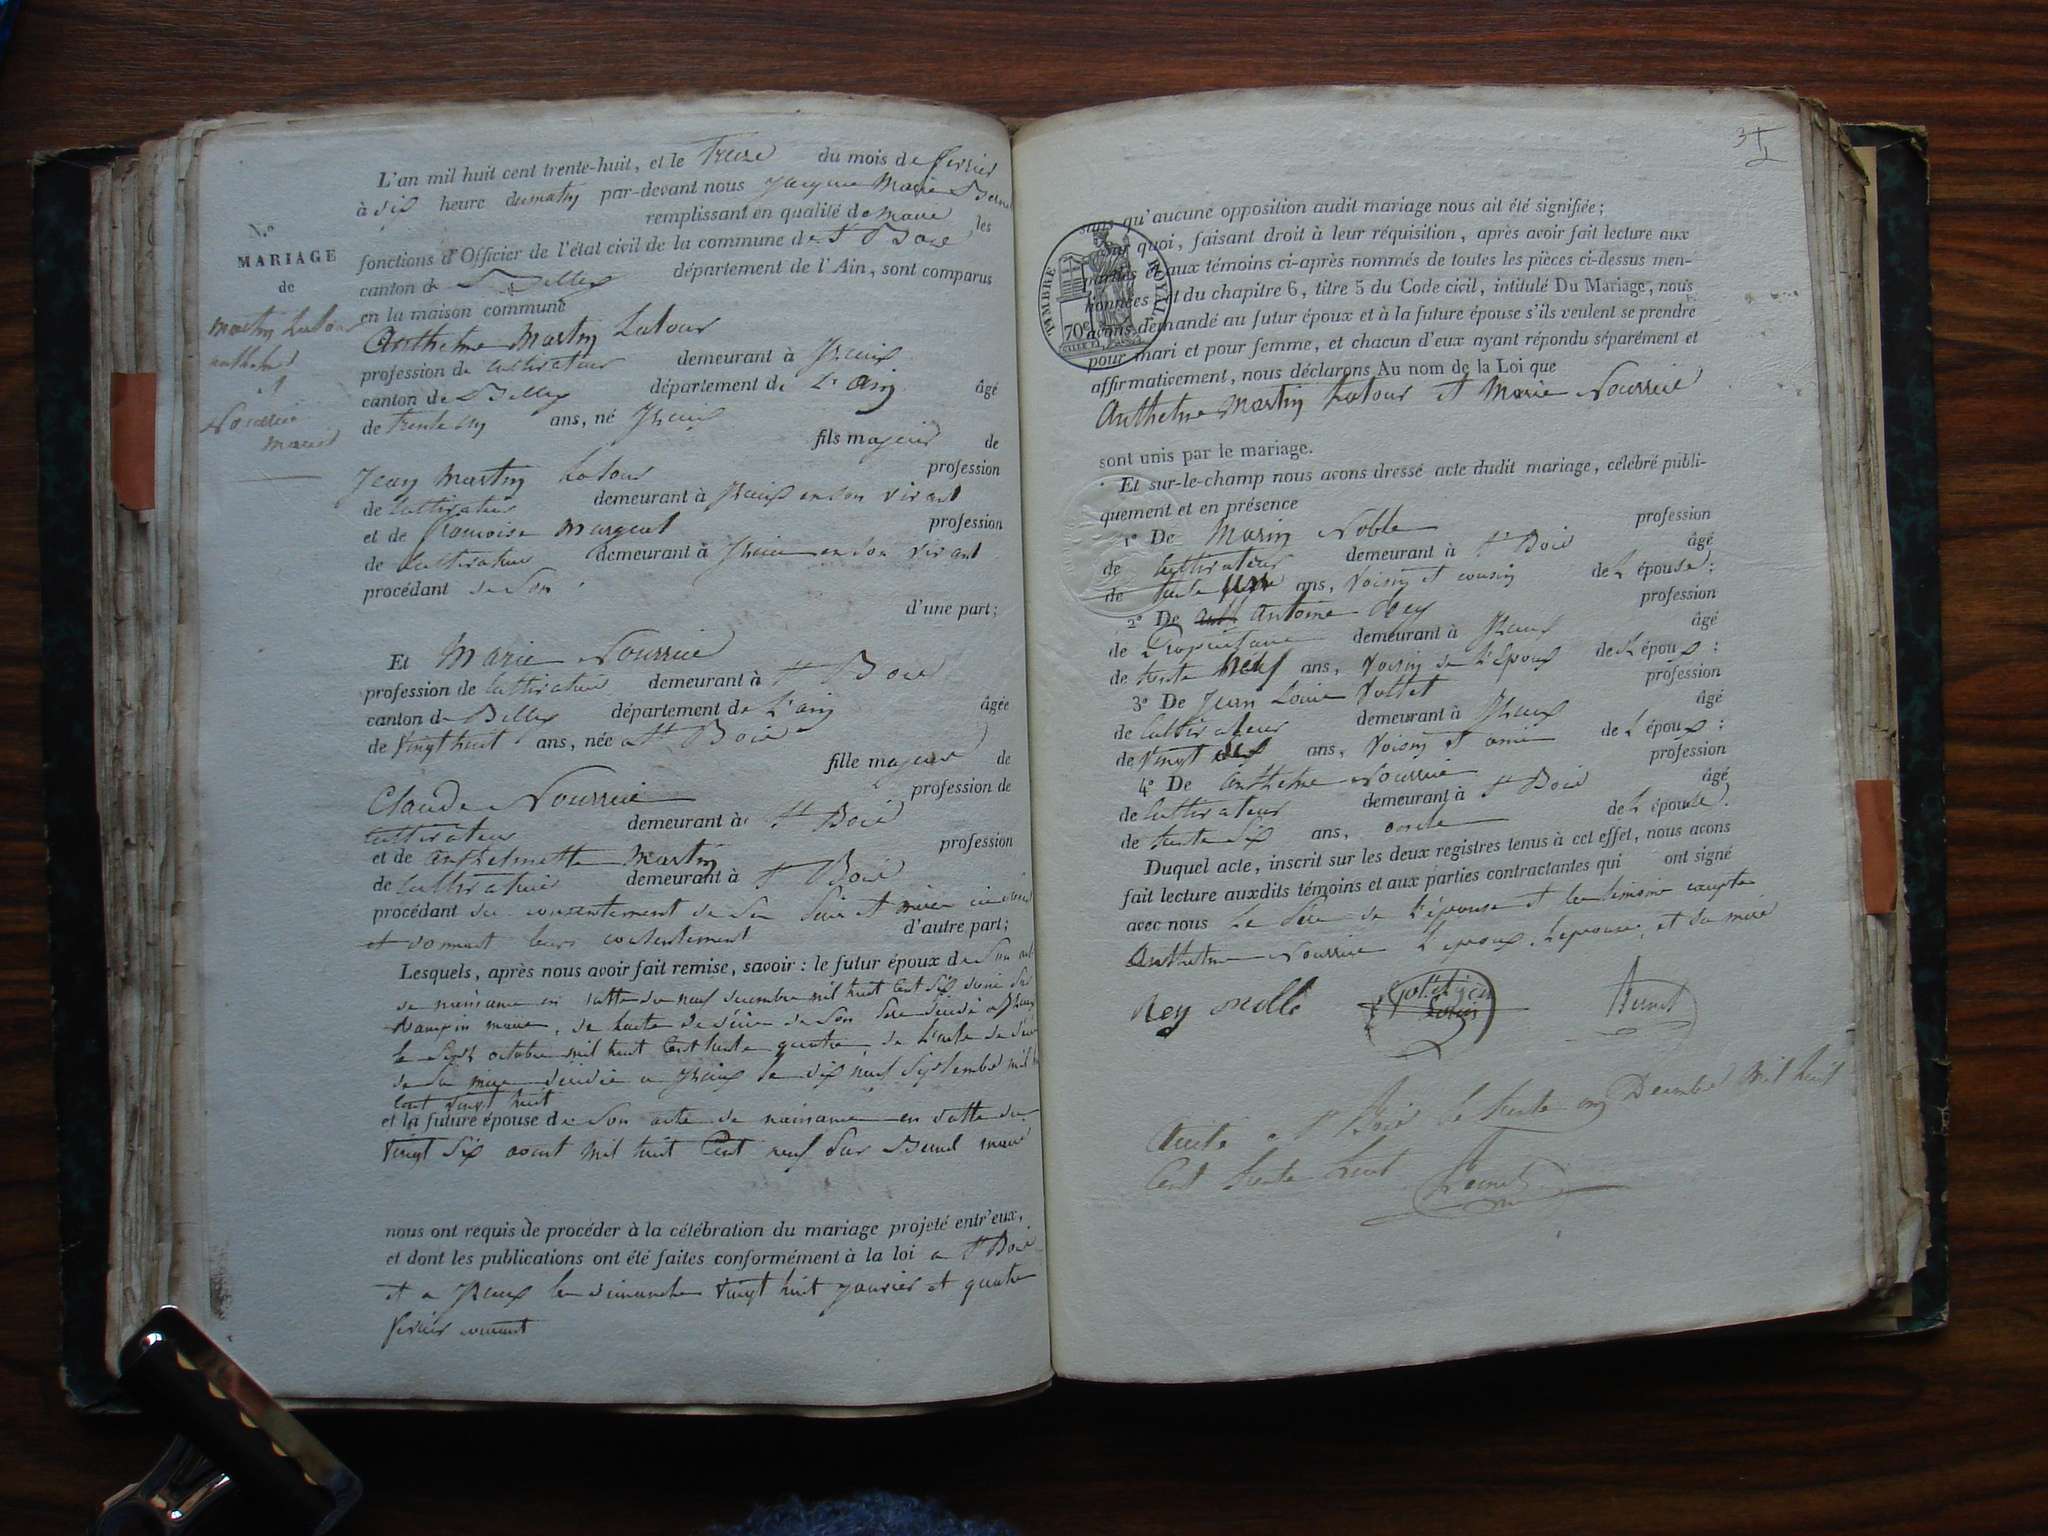 L'an mil huit cent trente-huit, et le treize du mois de fevrier
à dix heure dumatin par-devant nous Jacques Marie Bernet
remplissant en qualité de maire les
fonctions d'Officier de l'état civil de la commune de St Boie
canton de Belley département de l'Ain, sont comparus
en la maison commune
N.o
MARIAGE
de
Martin Latour
anthelme
et
Nourrice
marie
Anthelme Martin Latour
profession de cultivateur demeurant à
canton de Belley département de L'ain âgé
de trente un ans, né
fils majeur de
Jean Martin Latour profession
de cultivateur demeurant à en son vivant
et de francoise Margeut profession
de cultivateur demeurant à en son vivant
procédant de son
d'une part;
Et Marie Nourrice
profession de cultivatrice demeurant à St Boie
canton de Belley département de L'ain âgée
de vingt huit ans, née a St Boie
fille majeure de
Claude Nourrice profession de
cultivateur demeurant à St Boie
et de anthelmette Martin profession
de cultivatrice demeurant à St Boie
procédant du consentement de son père et mère
et donnant leurs consentement d'autre part;
Lesquels, après nous avoir fait remise, savoir : le futur époux de Son acte
de naissance en datte du neuf decembre mil huit cent six
maire, de lacte de décès de son père décédé a
le octobre mil huit cent trente quatre de l'acte de décès
de sa mère décédée a le dix neuf septembre mil huit
cent vingt huit
et la future épouse de son acte de naissance en datte du
vingt six aout mil huit cent neuf par Bernet maire
nous ont requis de procéder à la célébration du mariage projeté entr'eux,
et dont les publications ont été faites conformément à la loi a St Boie
et a les dimanches vingt huit janvier et quatre
février courant
sans qu'aucune opposition audit mariage nous ait été signifiée;
Sur quoi, faisant droit à leur réquisition, après avoir fait lecture aux
parties et aux témoins ci-après nommés de toutes les pièces ci-dessus men-
tionnées et du chapitre 6, titre 5 du Code civil, intitulé Du Mariage, nous
avons demandé au futur époux et à la future épouse s'ils veulent se prendre
pour mari et pour femme, et chacun d'eux ayant répondu séparément et
affirmativement, nous déclarons Au nom de la Loi que
TIMBRE ROYAL
70c
Anthelme Martin Latour et Marie Nourrice
sont unis par le mariage.
Et sur-le-champ nous avons dressé acte dudit mariage, célébré publi-
quement et en présence
1o De Marin Noble profession
de cultivateur demeurant à St Boie âgé
de trente ans, voisin et cousin de L'épouse;
2o De Antoine Rey profession
de Propriétaire demeurant à âgé
de trente neuf ans, voisin de L'époux de L'époux;
3o De Jean Louis Vuttet profession
de cultivateur demeurant à âgé
de vingt ans, voisin et ami de L'époux;
4o De anthelme Nourrice profession
de cultivateur demeurant à St Boie âgé
de trente six ans, oncle de L'épouse.
Duquel acte, inscrit sur les deux registres tenus à cet effet, nous avons
fait lecture auxdits témoins et aux parties contractantes qui ont signé
avec nous le père de l'épouse et les témoins excepté
Anthelme Nourrice l'époux, l'épouse, et sa mère
Rey Bernet
à St Boie le trente un Decembre mil huit
Cent trente huit
Bernet